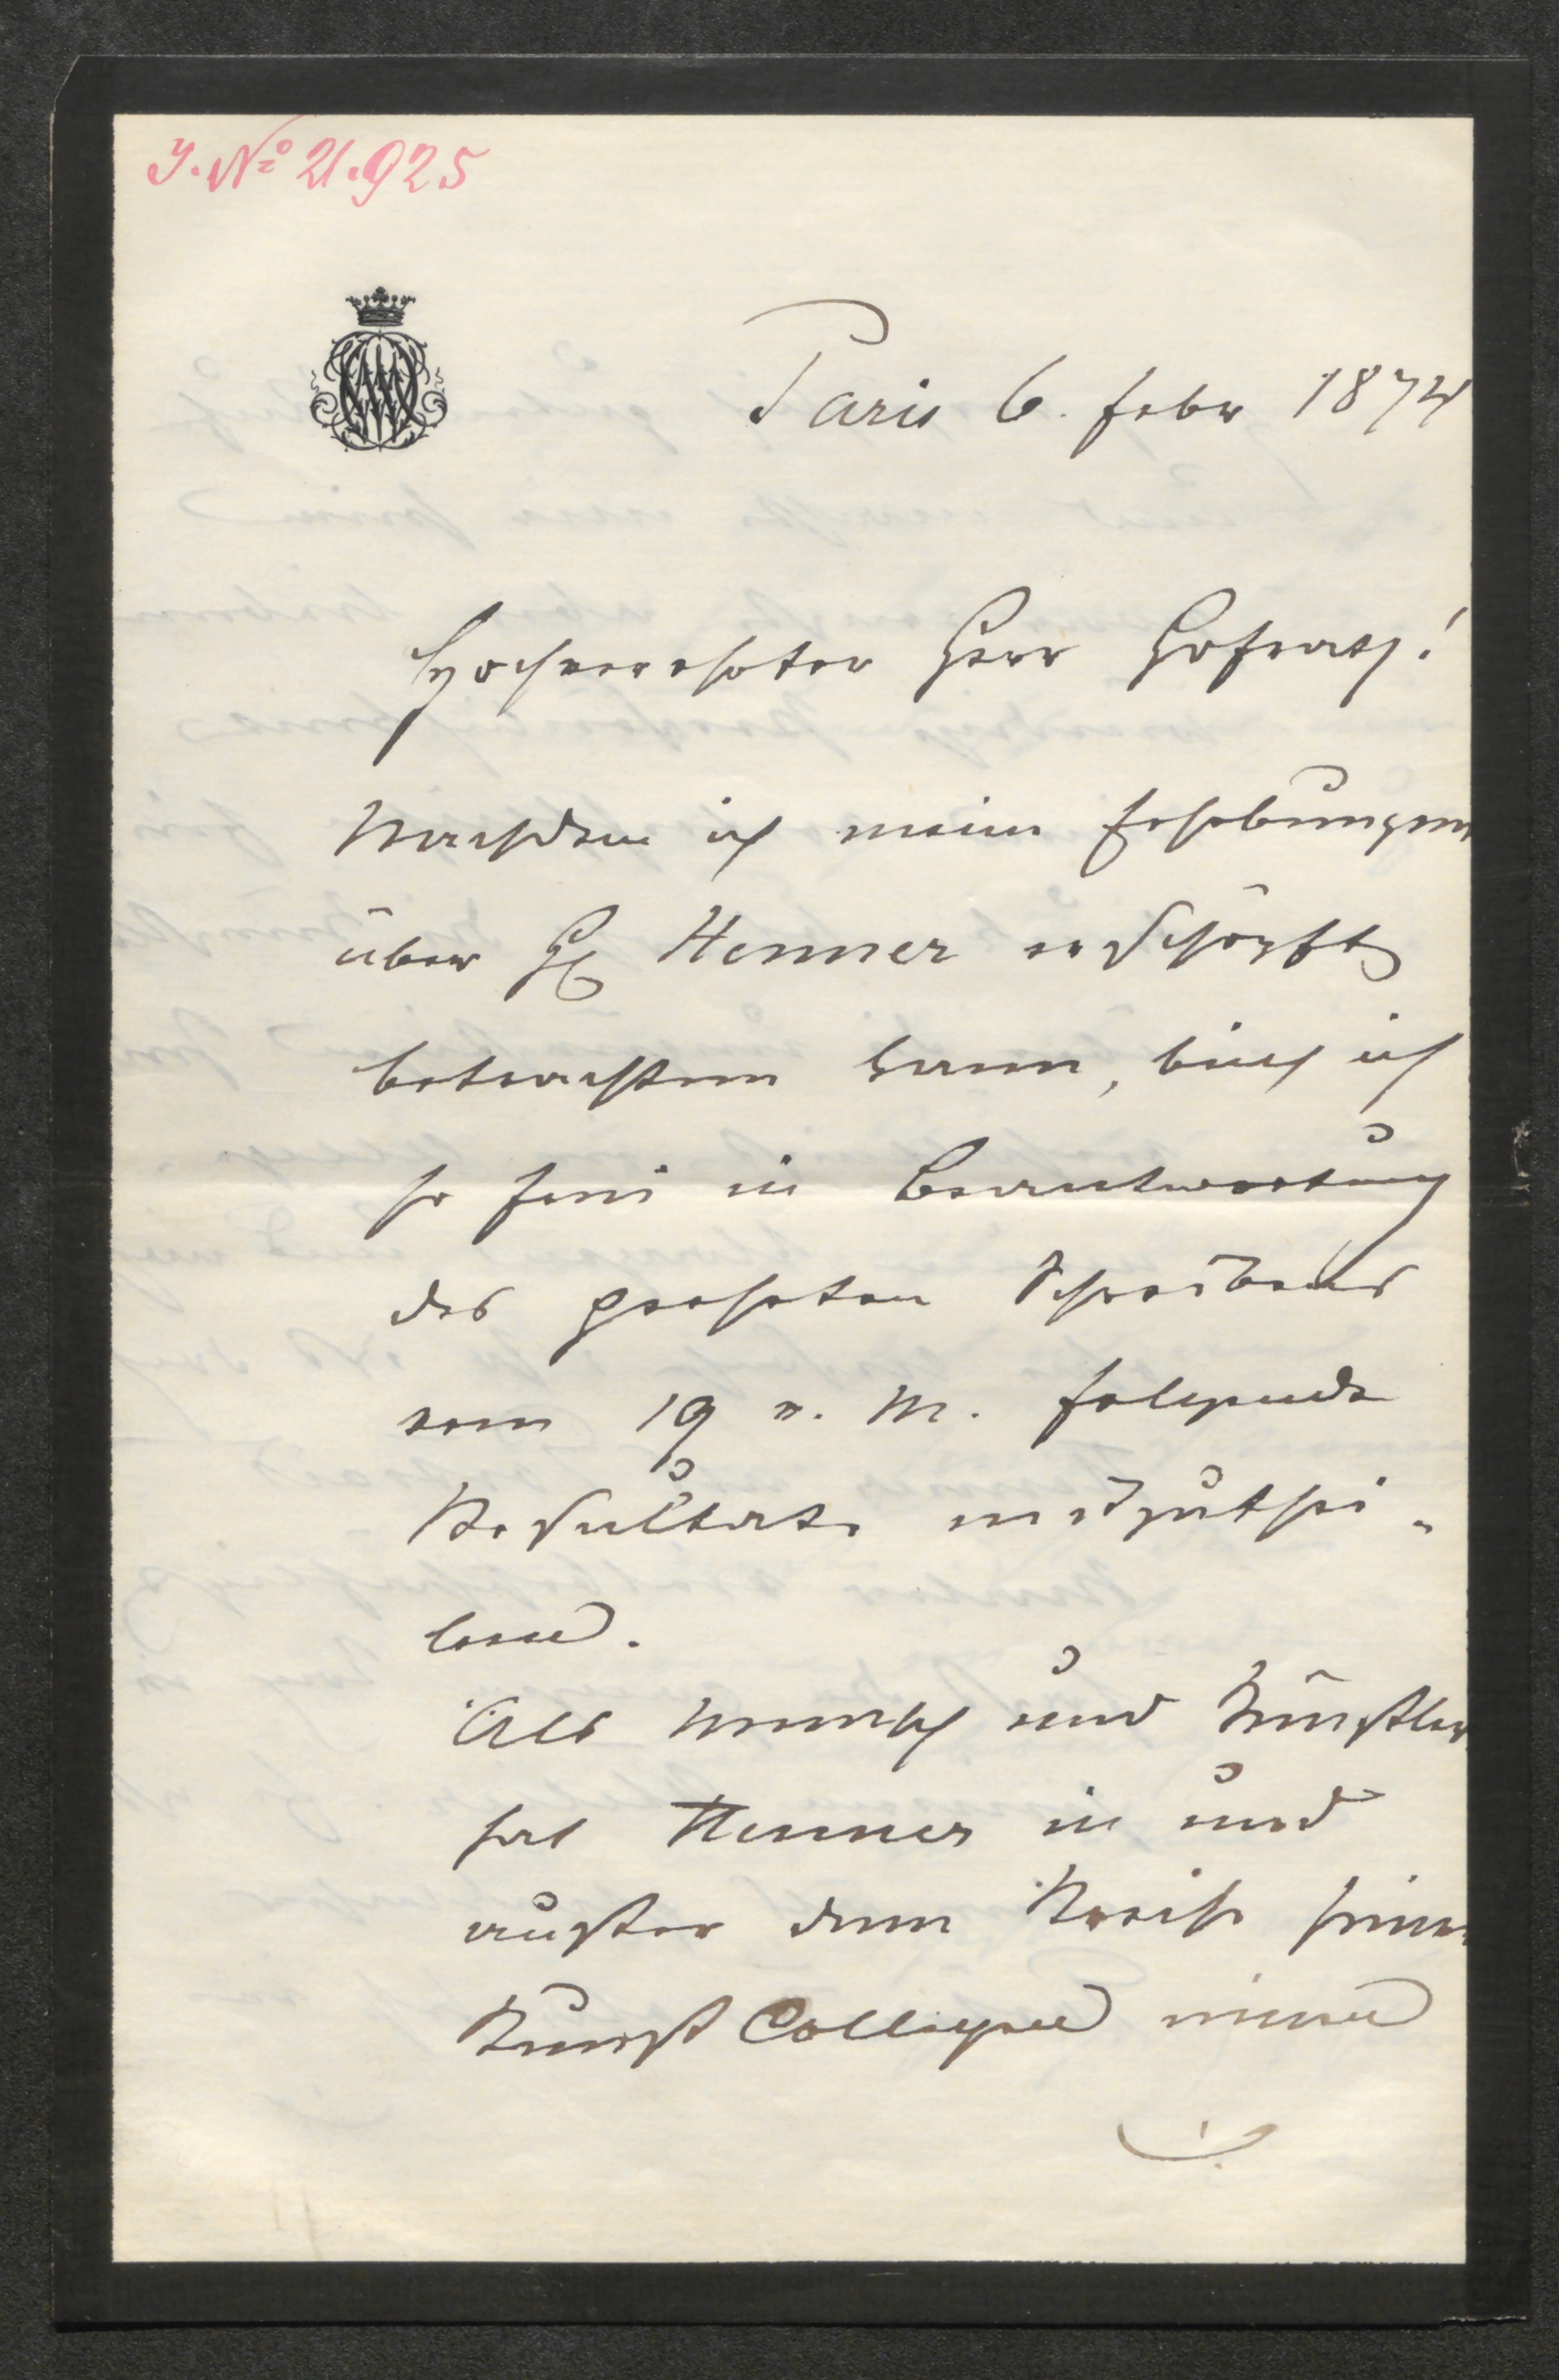 J. No 21.925
Paris 6. Febr 1874
Hochverehrter Herr Hofrath!
Nachdem ich meine Erhebungen
über H Henner erschöpft
betrachten kann, bin ich
so frei in Beantwortung
des geehrten Schreibens
vom 19 v. M. folgende
Resultate mitzuthei-
len.
Als Mensch und Künstler
hat Henner in und
außer dem Kreise seiner
Kunst Collegen einen